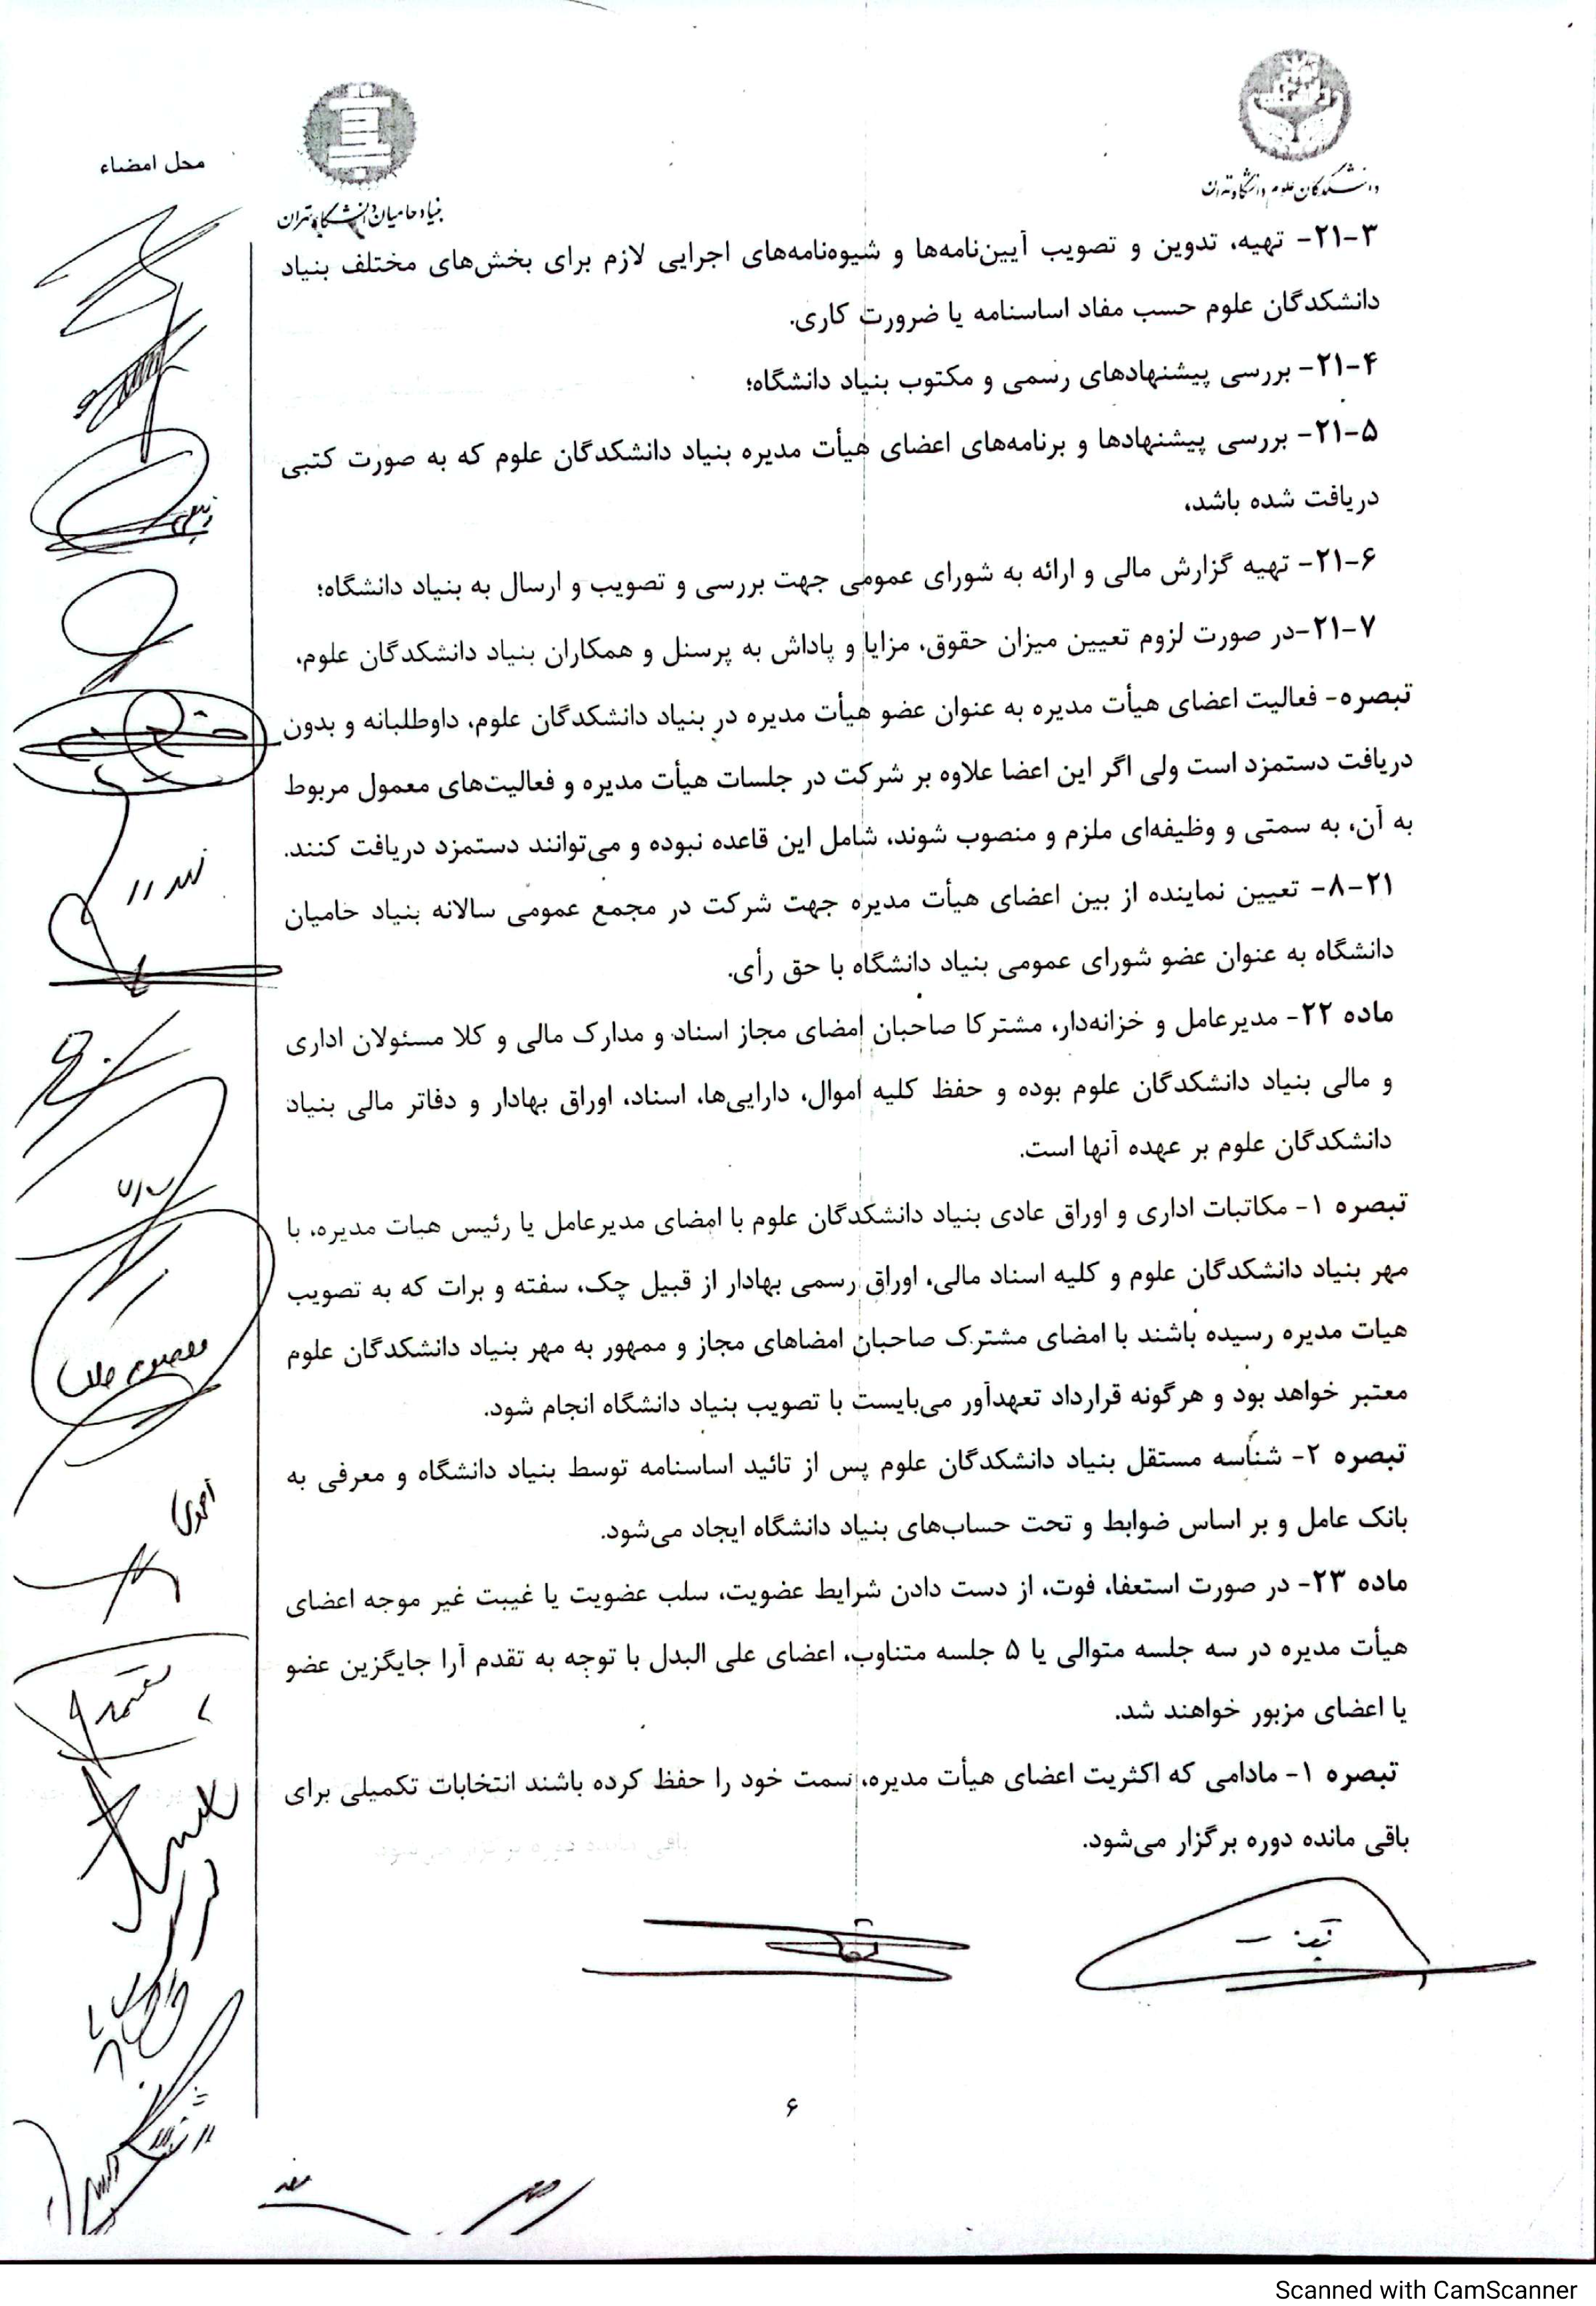 دانشکدگان علوم دانشگاه تهران
بنیاد حامیان دانشگاه تهران
محل امضاء
۲۱-۳- تهیه، تدوین و تصویب آیین‌نامه‌ها و شیوه‌نامه‌های اجرایی لازم برای بخش‌های مختلف بنیاد
دانشکدگان علوم حسب مفاد اساسنامه یا ضرورت کاری.
۲۱-۴- بررسی پیشنهادهای رسمی و مکتوب بنیاد دانشگاه؛
۲۱-۵- بررسی پیشنهادها و برنامه‌های اعضای هیأت مدیره بنیاد دانشکدگان علوم که به صورت کتبی
دریافت شده باشد،
۲۱-۶- تهیه گزارش مالی و ارائه به شورای عمومی جهت بررسی و تصویب و ارسال به بنیاد دانشگاه؛
۲۱-۷-در صورت لزوم تعیین میزان حقوق، مزایا و پاداش به پرسنل و همکاران بنیاد دانشکدگان علوم،
تبصره- فعالیت اعضای هیأت مدیره به عنوان عضو هیأت مدیره در بنیاد دانشکدگان علوم، داوطلبانه و بدون
دریافت دستمزد است ولی اگر این اعضا علاوه بر شرکت در جلسات هیأت مدیره و فعالیت‌های معمول مربوط
به آن، به سمتی و وظیفه‌ای ملزم و منصوب شوند، شامل این قاعده نبوده و می‌توانند دستمزد دریافت کنند.
۲۱-۸- تعیین نماینده از بین اعضای هیأت مدیره جهت شرکت در مجمع عمومی سالانه بنیاد حامیان
دانشگاه به عنوان عضو شورای عمومی بنیاد دانشگاه با حق رأی.
ماده ۲۲- مدیرعامل و خزانه‌دار، مشترکا صاحبان امضای مجاز اسناد و مدارک مالی و کلا مسئولان اداری
و مالی بنیاد دانشکدگان علوم بوده و حفظ کلیه اموال، دارایی‌ها، اسناد، اوراق بهادار و دفاتر مالی بنیاد
دانشکدگان علوم بر عهده آنها است.
تبصره ۱- مکاتبات اداری و اوراق عادی بنیاد دانشکدگان علوم با امضای مدیرعامل یا رئیس هیات مدیره، با
مهر بنیاد دانشکدگان علوم و کلیه اسناد مالی، اوراق رسمی بهادار از قبیل چک، سفته و برات که به تصویب
هیات مدیره رسیده باشند با امضای مشترک صاحبان امضاهای مجاز و ممهور به مهر بنیاد دانشکدگان علوم
معتبر خواهد بود و هرگونه قرارداد تعهدآور می‌بایست با تصویب بنیاد دانشگاه انجام شود.
تبصره ۲- شناسه مستقل بنیاد دانشکدگان علوم پس از تائید اساسنامه توسط بنیاد دانشگاه و معرفی به
بانک عامل و بر اساس ضوابط و تحت حساب‌های بنیاد دانشگاه ایجاد می‌شود.
ماده ۲۳- در صورت استعفا، فوت، از دست دادن شرایط عضویت، سلب عضویت یا غیبت غیر موجه اعضای
هیأت مدیره در سه جلسه متوالی یا ۵ جلسه متناوب، اعضای علی البدل با توجه به تقدم آرا جایگزین عضو
یا اعضای مزبور خواهند شد.
تبصره ۱- مادامی که اکثریت اعضای هیأت مدیره، سمت خود را حفظ کرده باشند انتخابات تکمیلی برای
باقی مانده دوره برگزار می‌شود.
۶
Scanned with CamScanner